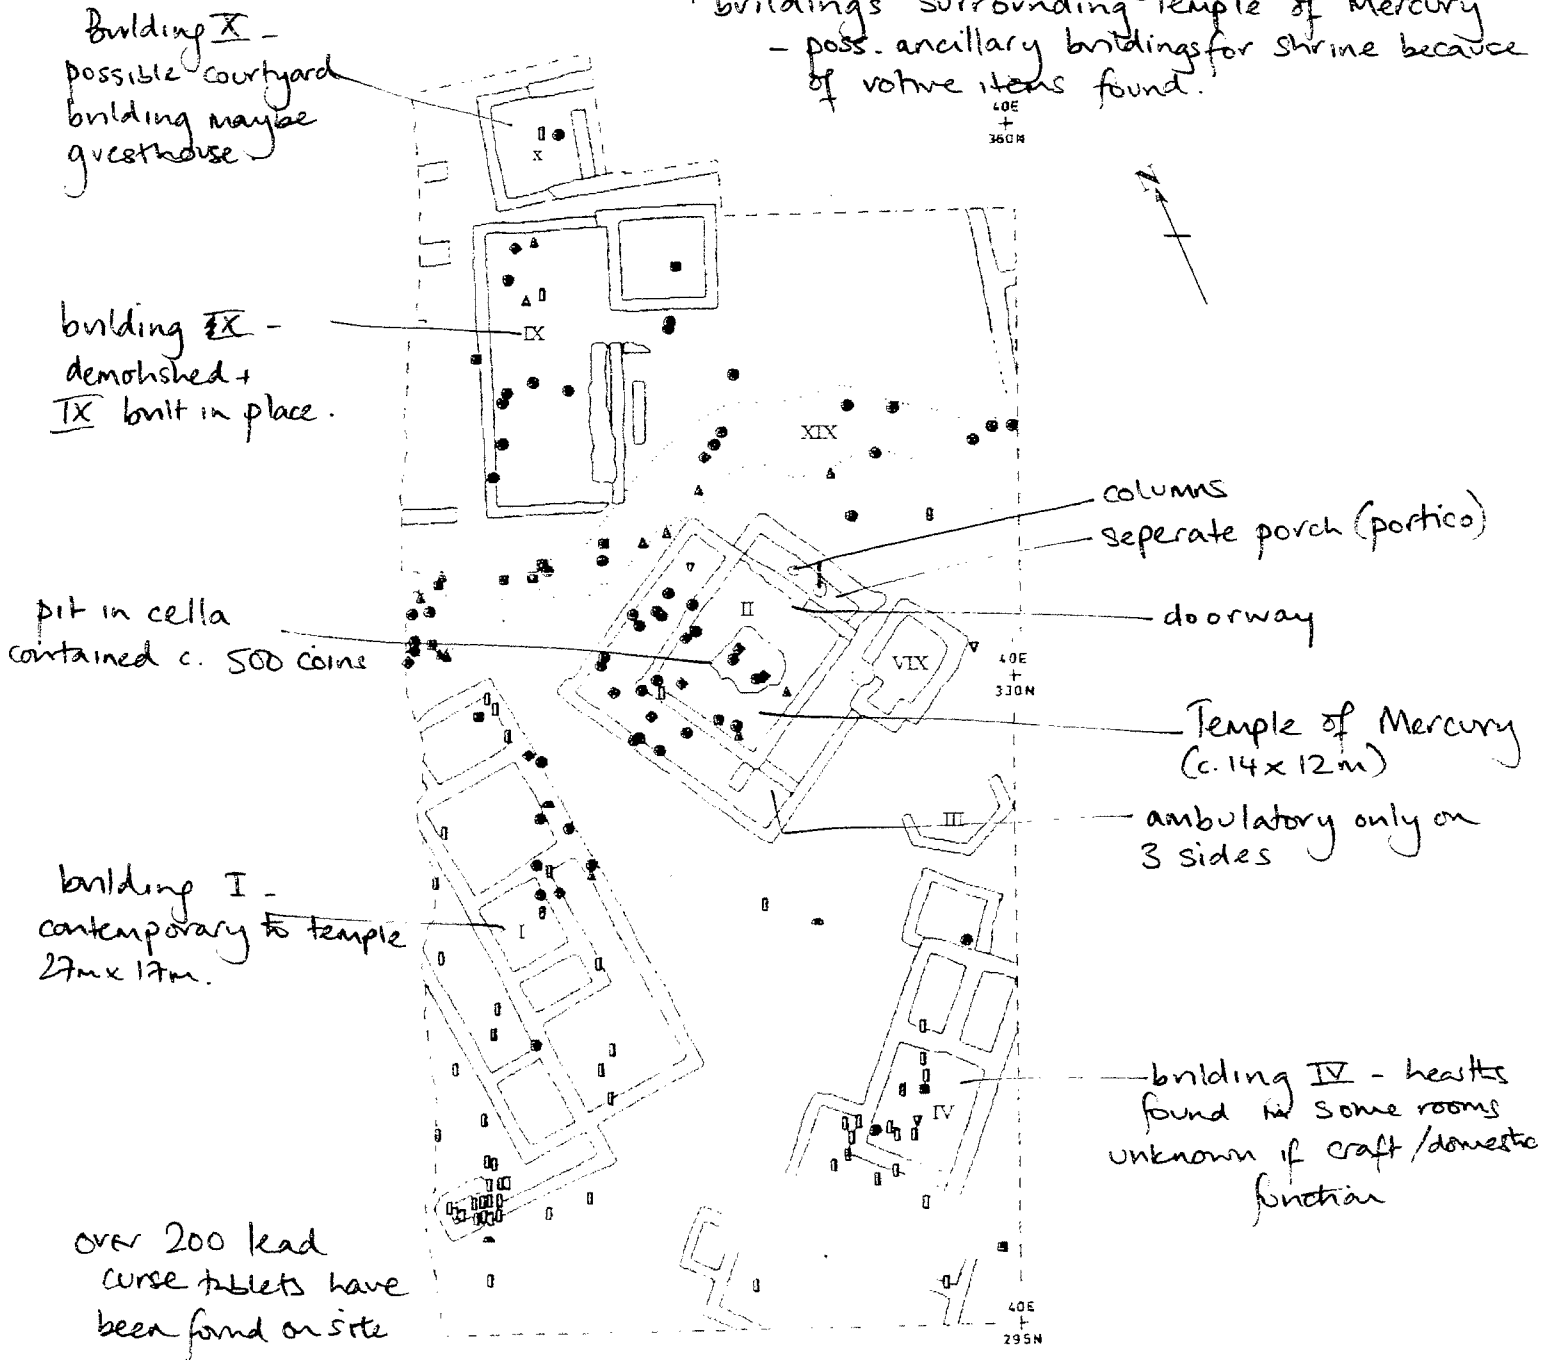 buildings surrounding Temple of Mercury
- poss. ancillary buildings for shrine because
of votive items found.
Building X -
possible courtyard
building maybe
guesthouse
40E
360N
N
X
building IX -
demolished +
IX built in place.
IX
XIX
columns
seperate porch (portico)
II
doorway
pit in cella
contained c. 500 coins
VIX
40E
330N
Temple of Mercury
(c. 14 x 12m)
III
ambulatory only on
3 sides
building I -
contemporary to temple
27m x 17m.
I
building IV - hearths
found in some rooms
unknown if craft/domestic
function
IV
over 200 lead
curse tablets have
been found on site
40E
295N